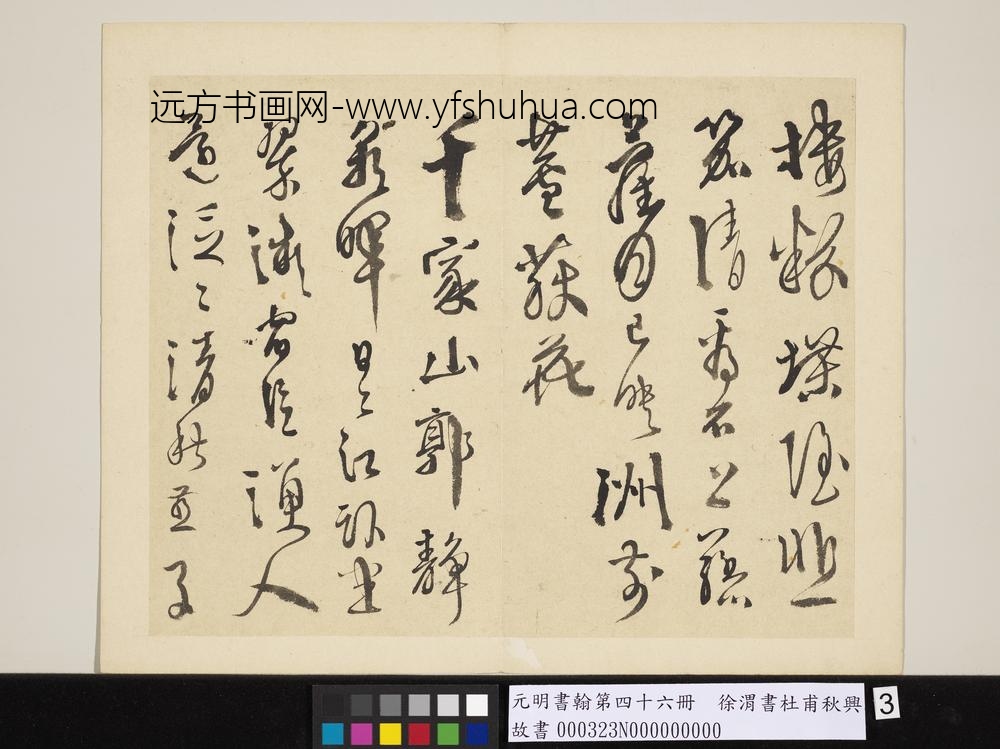 远方书画网-www.yfshuhua.com
樓粉堞隱悲
笳請看石上藤
蘿月已映洲前
蘆荻花
千家山郭靜
朝暉日〻江坐
翠微宿信漁人
還泛〻清秋燕子
元明書翰第四十六冊 徐渭書杜甫秋興
故書000323N000000000
3